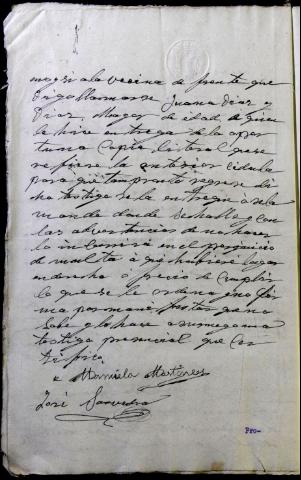 mozó a la vecina de frente que
dijo llamarse Juana Diaz y
Diaz. Mayor de edad, a quien
le hice entrega de la opor
tuna copia literal que se
refiere la anterior cédula
para que tan pronto regrese di
cho testigo se la entregue o se la
mande donde se halle, y con
las advertencias de no hacer
lo incurrirá en el perjuicio
de multa a que hubiere lugar
en derecho ó precio de cumplir
lo que se le ordena, y no fir
ma por manifestar que no
sabe y lo hace a su ruego una
testigo presencial que cer
tifico
Manuela Martinez
José Saavedra
Pro-